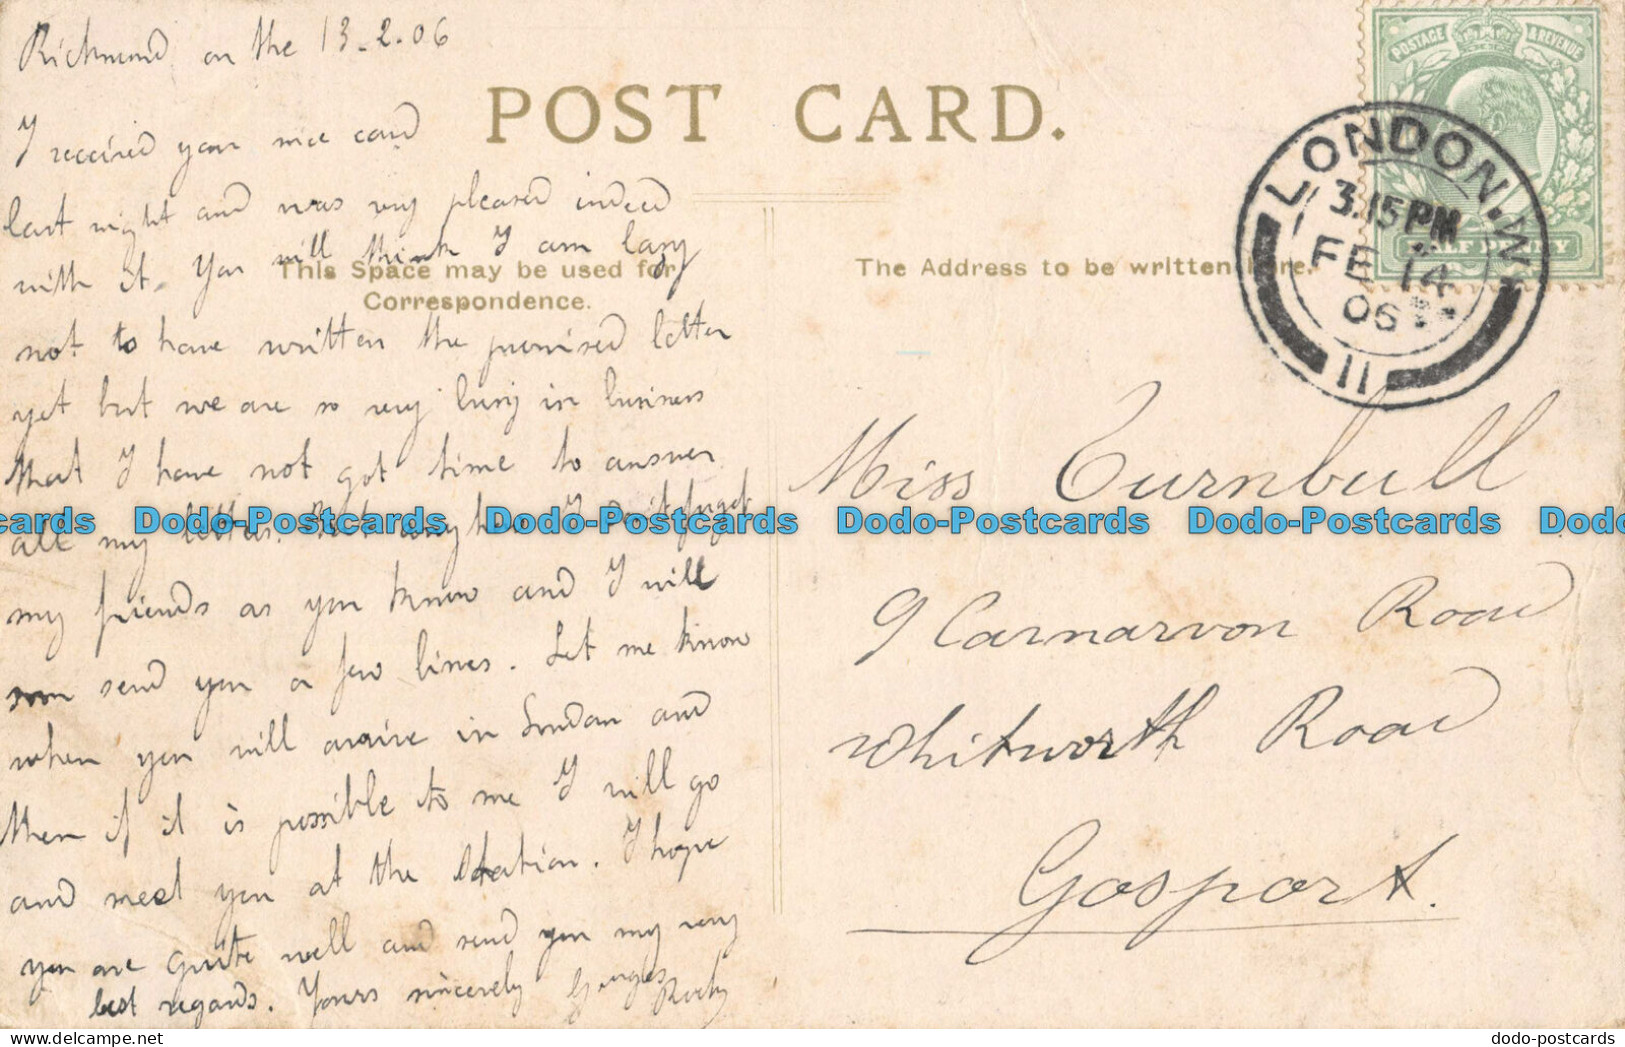 Richmond on the 13-2-06
POST CARD.
I received your nice card
last night and was very pleased indeed
with it. You will think I am lazy
not to have written the promised letter
yet but we are so very busy in business
that I have not got time to answer
all my letters. But anyhow I don't forget
my friends as you know and I will
soon send you a few lines. Let me know
when you will arrive in London and
then if it is possible to me I will go
and meet you at the station. I hope
you are quite well and send you my very
best regards. Yours sincerely Georges
This Space may be used for
Correspondence.
The Address to be written here.
POSTAGE & REVENUE
HALF PENNY
LONDON.W.
3.15PM
FE 14
06
11
Miss Turnbull
9 Carnarvon Road
Whitworth Road
Gosport.
Dodo-Postcards Dodo-Postcards Dodo-Postcards Dodo-Postcards
dodo-postcards